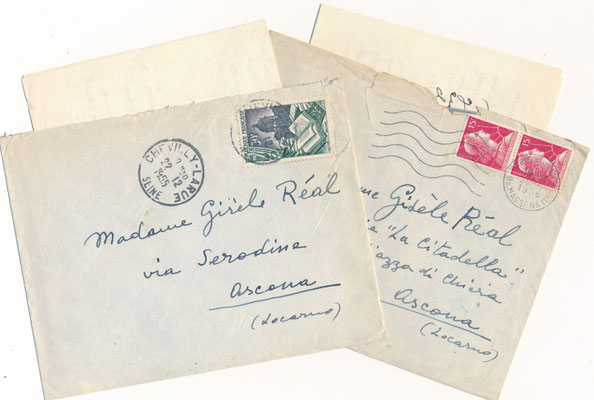 CHEVILLY-LARUE
22 12
1955
SEINE
Madame Gisèle Réal
via Serodine
Ascona
(Locarno)
15F
15F
Gisèle Réal
"La Citadella"
di Chiesa
Ascona
(Locarno)